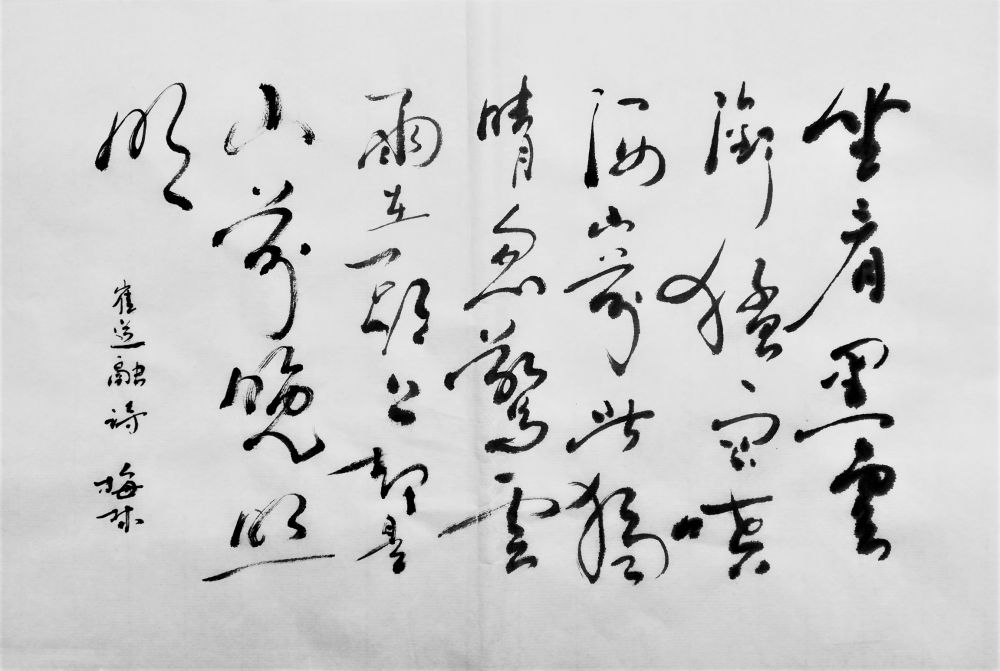 坐看黑雲
銜猛雨噴
洒山前此獨
晴忽驚雲
雨在頭上卻是
山前晚照
明
崔道融詩 梅